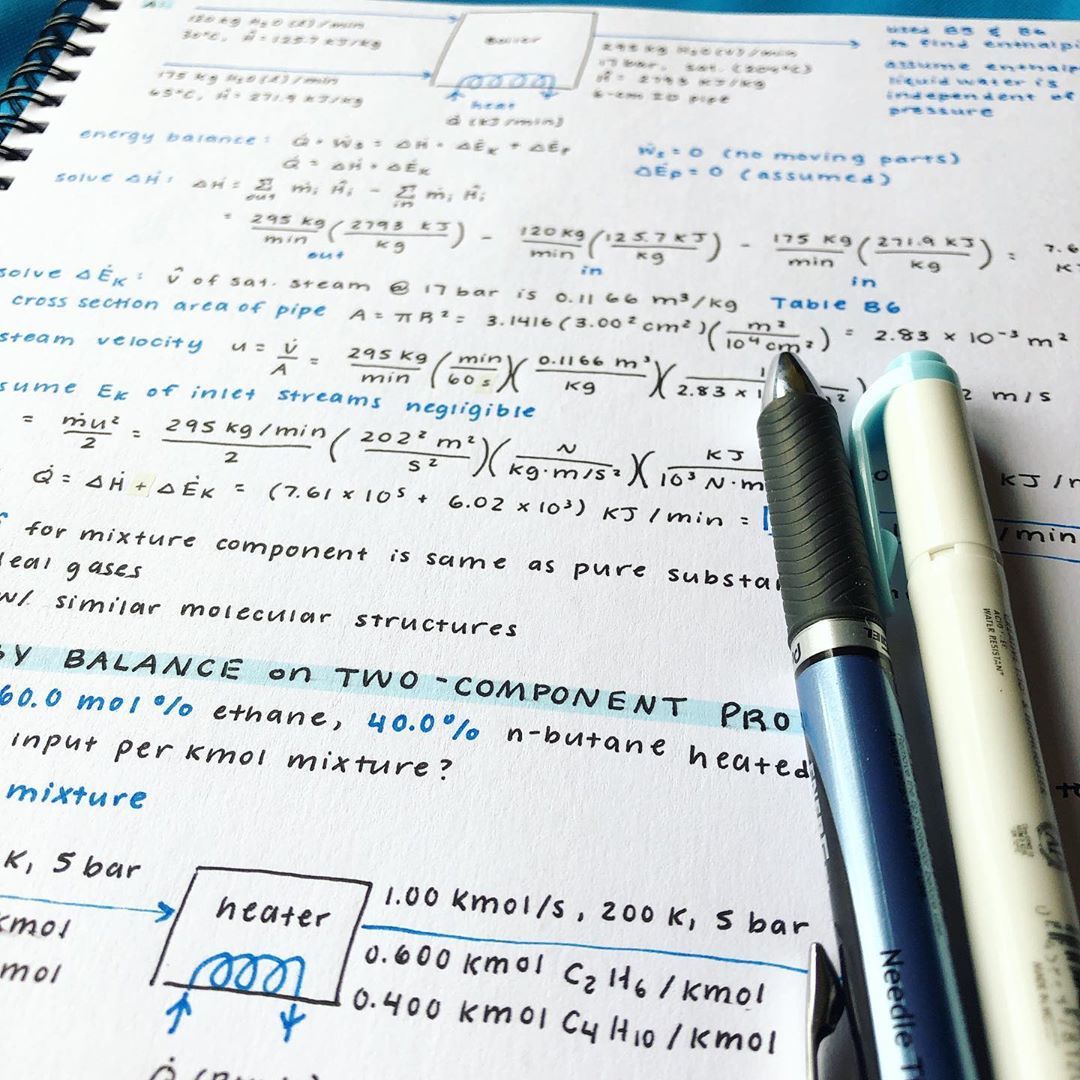 120 kg H₂O (l) / min
30°C, Ĥ = 125.7 kJ/kg
175 kg H₂O (l) / min
65°C, Ĥ = 271.9 kJ/kg
Boiler
heat
Q̇ (kJ/min)
295 kg H₂O (v) / min
17 bar, sat. (204°C)
Ĥ = 2793 kJ/kg
6-cm ID pipe
used B5 & B6
to find enthalpi
assume enthalp
liquid water is
independent of
pressure
energy balance: Q̇ + Ẇs = ΔḢ + ΔĖK + ΔĖP
Q̇ = ΔḢ + ΔĖK
Ẇs = 0 (no moving parts)
ΔĖP = 0 (assumed)
solve ΔḢ: ΔḢ = Σout ṁi Ĥi - Σin ṁi Ĥi
= 295 kg/min (2793 kJ/kg) - 120 kg/min (125.7 kJ/kg) - 175 kg/min (271.9 kJ/kg) = 7.6
out in in
solve ΔĖK: V̂ of sat. steam @ 17 bar is 0.1166 m³/kg Table B6
cross section area of pipe A = πR² = 3.1416 (3.00² cm²)(m²/10⁴ cm²) = 2.83 × 10⁻³ m²
steam velocity u = V̇/A = 295 kg/min (min/60 s)(0.1166 m³/kg)(1/2.83 × 2 m/s
sume EK of inlet streams negligible
= ṁu²/2 = 295 kg/min/2 (202² m²/s²)(N/kg·m/s²)(kJ/10³ N·m
kJ/
Q̇ = ΔḢ + ΔĖK = (7.61 × 10⁵ + 6.02 × 10³) kJ/min =
/min
for mixture component is same as pure substa
deal gases
w/ similar molecular structures
GY BALANCE on TWO-COMPONENT PRO
60.0 mol% ethane, 40.0% n-butane heated
input per kmol mixture?
mixture
K, 5 bar
kmol
mol
heater
1.00 kmol/s, 200 K, 5 bar
0.600 kmol C₂H₆/kmol
0.400 kmol C₄H₁₀/kmol
Needle T
WATER RESISTANT